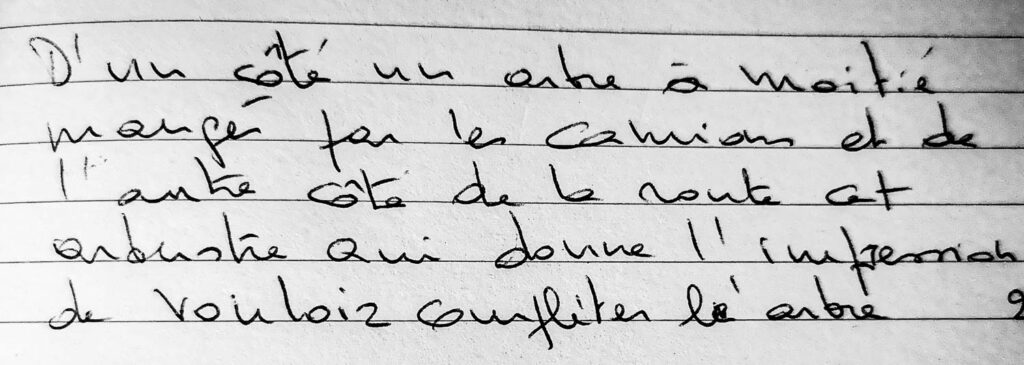 D'un côté un arbre à moitié
mangé par les camions et de
l'autre côté de la route cet
arbustre qui donne l'impression
de vouloir compléter l'arbre